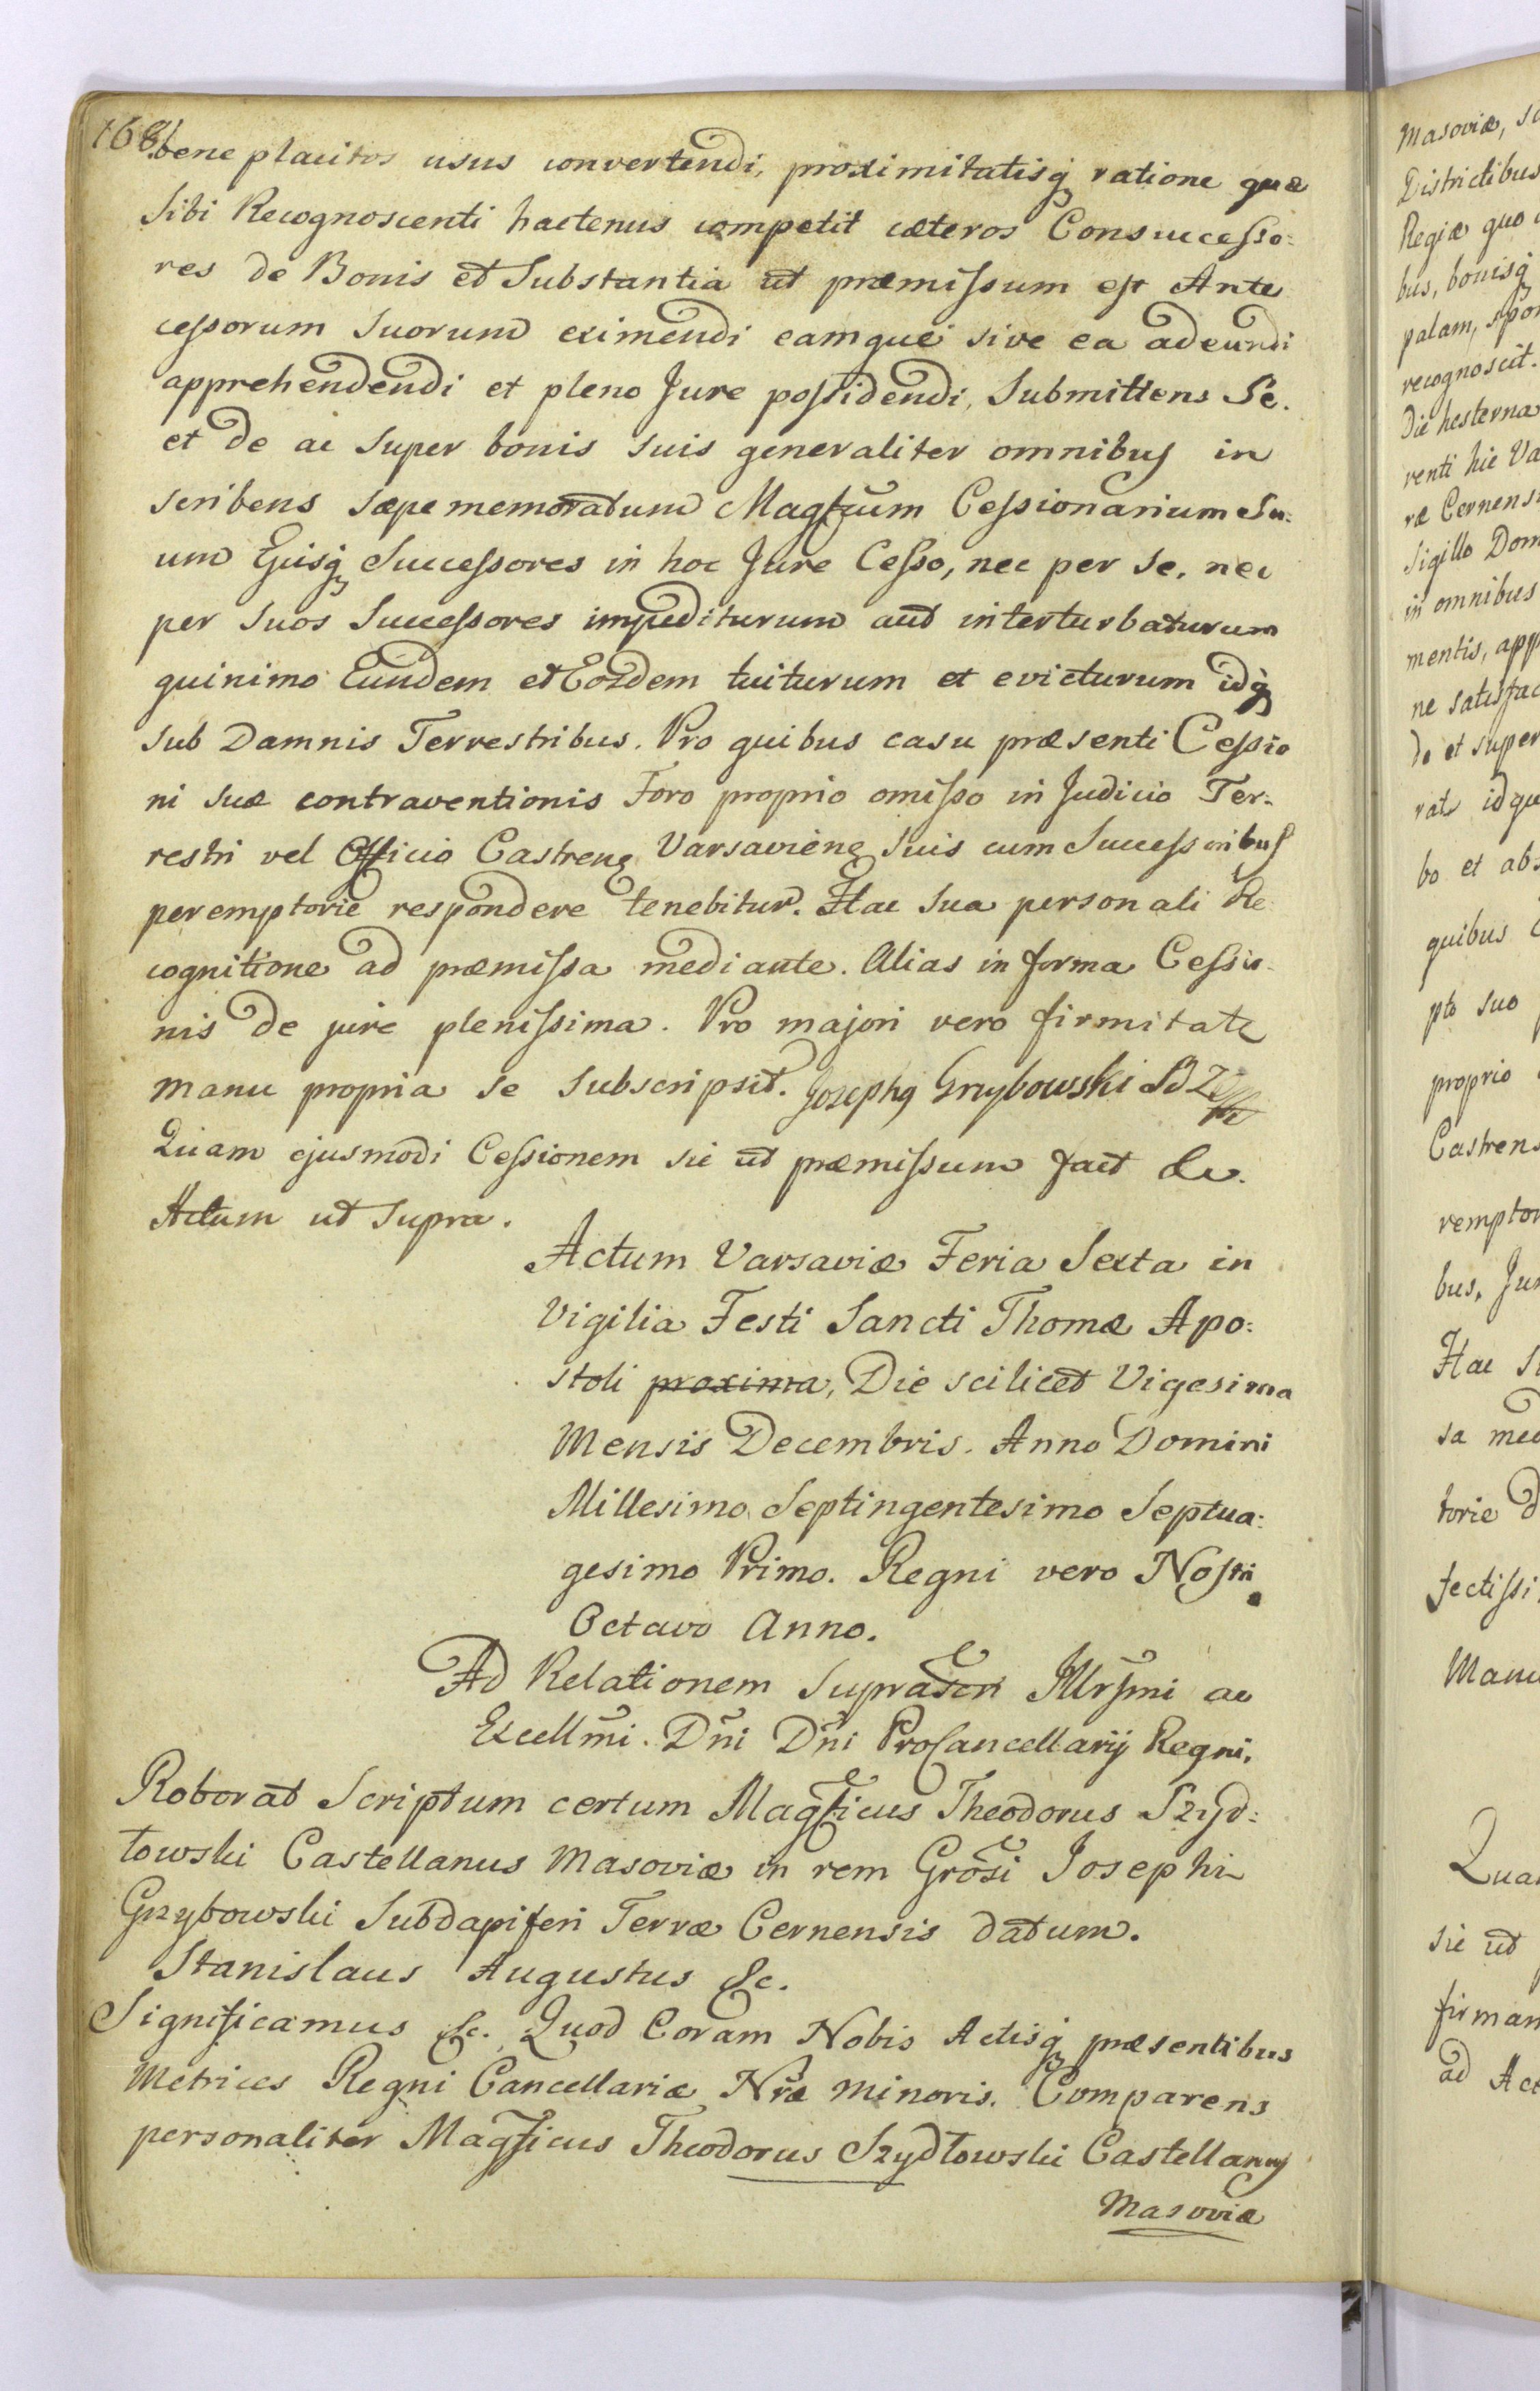 168.
bene placitos usus convertendi, proximitatisq ratione quæ
Sibi Recognoscenti hactenus competit cæteros Consuccesso:
res de Bonis et Substantia ut præmissum est Ante
cessorum Suorum eximendi eamque sive ea adeundi
apprehendendi et pleno Jure possidendi, Submittens Se.
et de ac Super bonis suis generaliter omnibus in
scribens sæpe memoratum Magfcum Cessionarium Su:
um Ejusq Successores in hoc Jure Cesso, nec per se, nec
per Suos Successores impediturum aut interturbaturum
quinimo Eundem et Eosdem tuiturum et evicturum idq
sub Damnis Terrestribus. Pro quibus casu præsenti Cessio
ni suæ contraventionis Foro proprio omisso in Judicio Ter:
restri vel Officio Castren Varsavien Suis cum Successoribus
peremptorie respondere tenebitur. Hac Sua personali Re
cognitione ad præmissa mediante. Alias in forma Cessio
nis de jure plenissima. Pro majori vero firmitate
manu propria se Subscripsit. Josephq Grzybowski
Quam ejusmodi Cessionem sic ut præmissum fact &c.
Actum ut Supra.
Actum Varsaviæ Feria Sexta in
Vigilia Festi Sancti Thomæ Apo:
stoli proxima, Die scilicet Vigesima
Mensis Decembris. Anno Domini
Millesimo Septingentesimo Septua:
gesimo Primo. Regni vero Nostri
Octavo Anno.
Ad Relationem Suprascri Illrsmi ac
Excellmi. Dni Dni ProCancellarij Regni.
Roborat Scriptum certum Magficus Theodorus Szyd:
łowski Castellanus Masoviæ in rem Grosi Josephi
Grzybowski Subdapiferi Terræ Cernensis datum.
Stanislaus Augustus &c.
Significamus &c. Quod Coram Nobis Actisq præsentibus
Metrices Regni Cancellariæ Nræ Minoris. Comparens
personaliter Magficus Theodorus Szydłowski Castellanus
Masoviæ
Masoviæ,
Districtibus
Regiæ quo
bus, bonisq
palam,
recognoscit.
Die hesterna
venti hic Va
ræ Cernensi
Sigillo Dom
in omnibus
mentis, app
ne satisfac
do et super
rat idque
bo et abs
quibus
pto suo
proprio
Castrens
rempto
bus, Jur
Hac
sa med
torie d
fectissi
Manu
Quam
sic ut
firman
ad Act